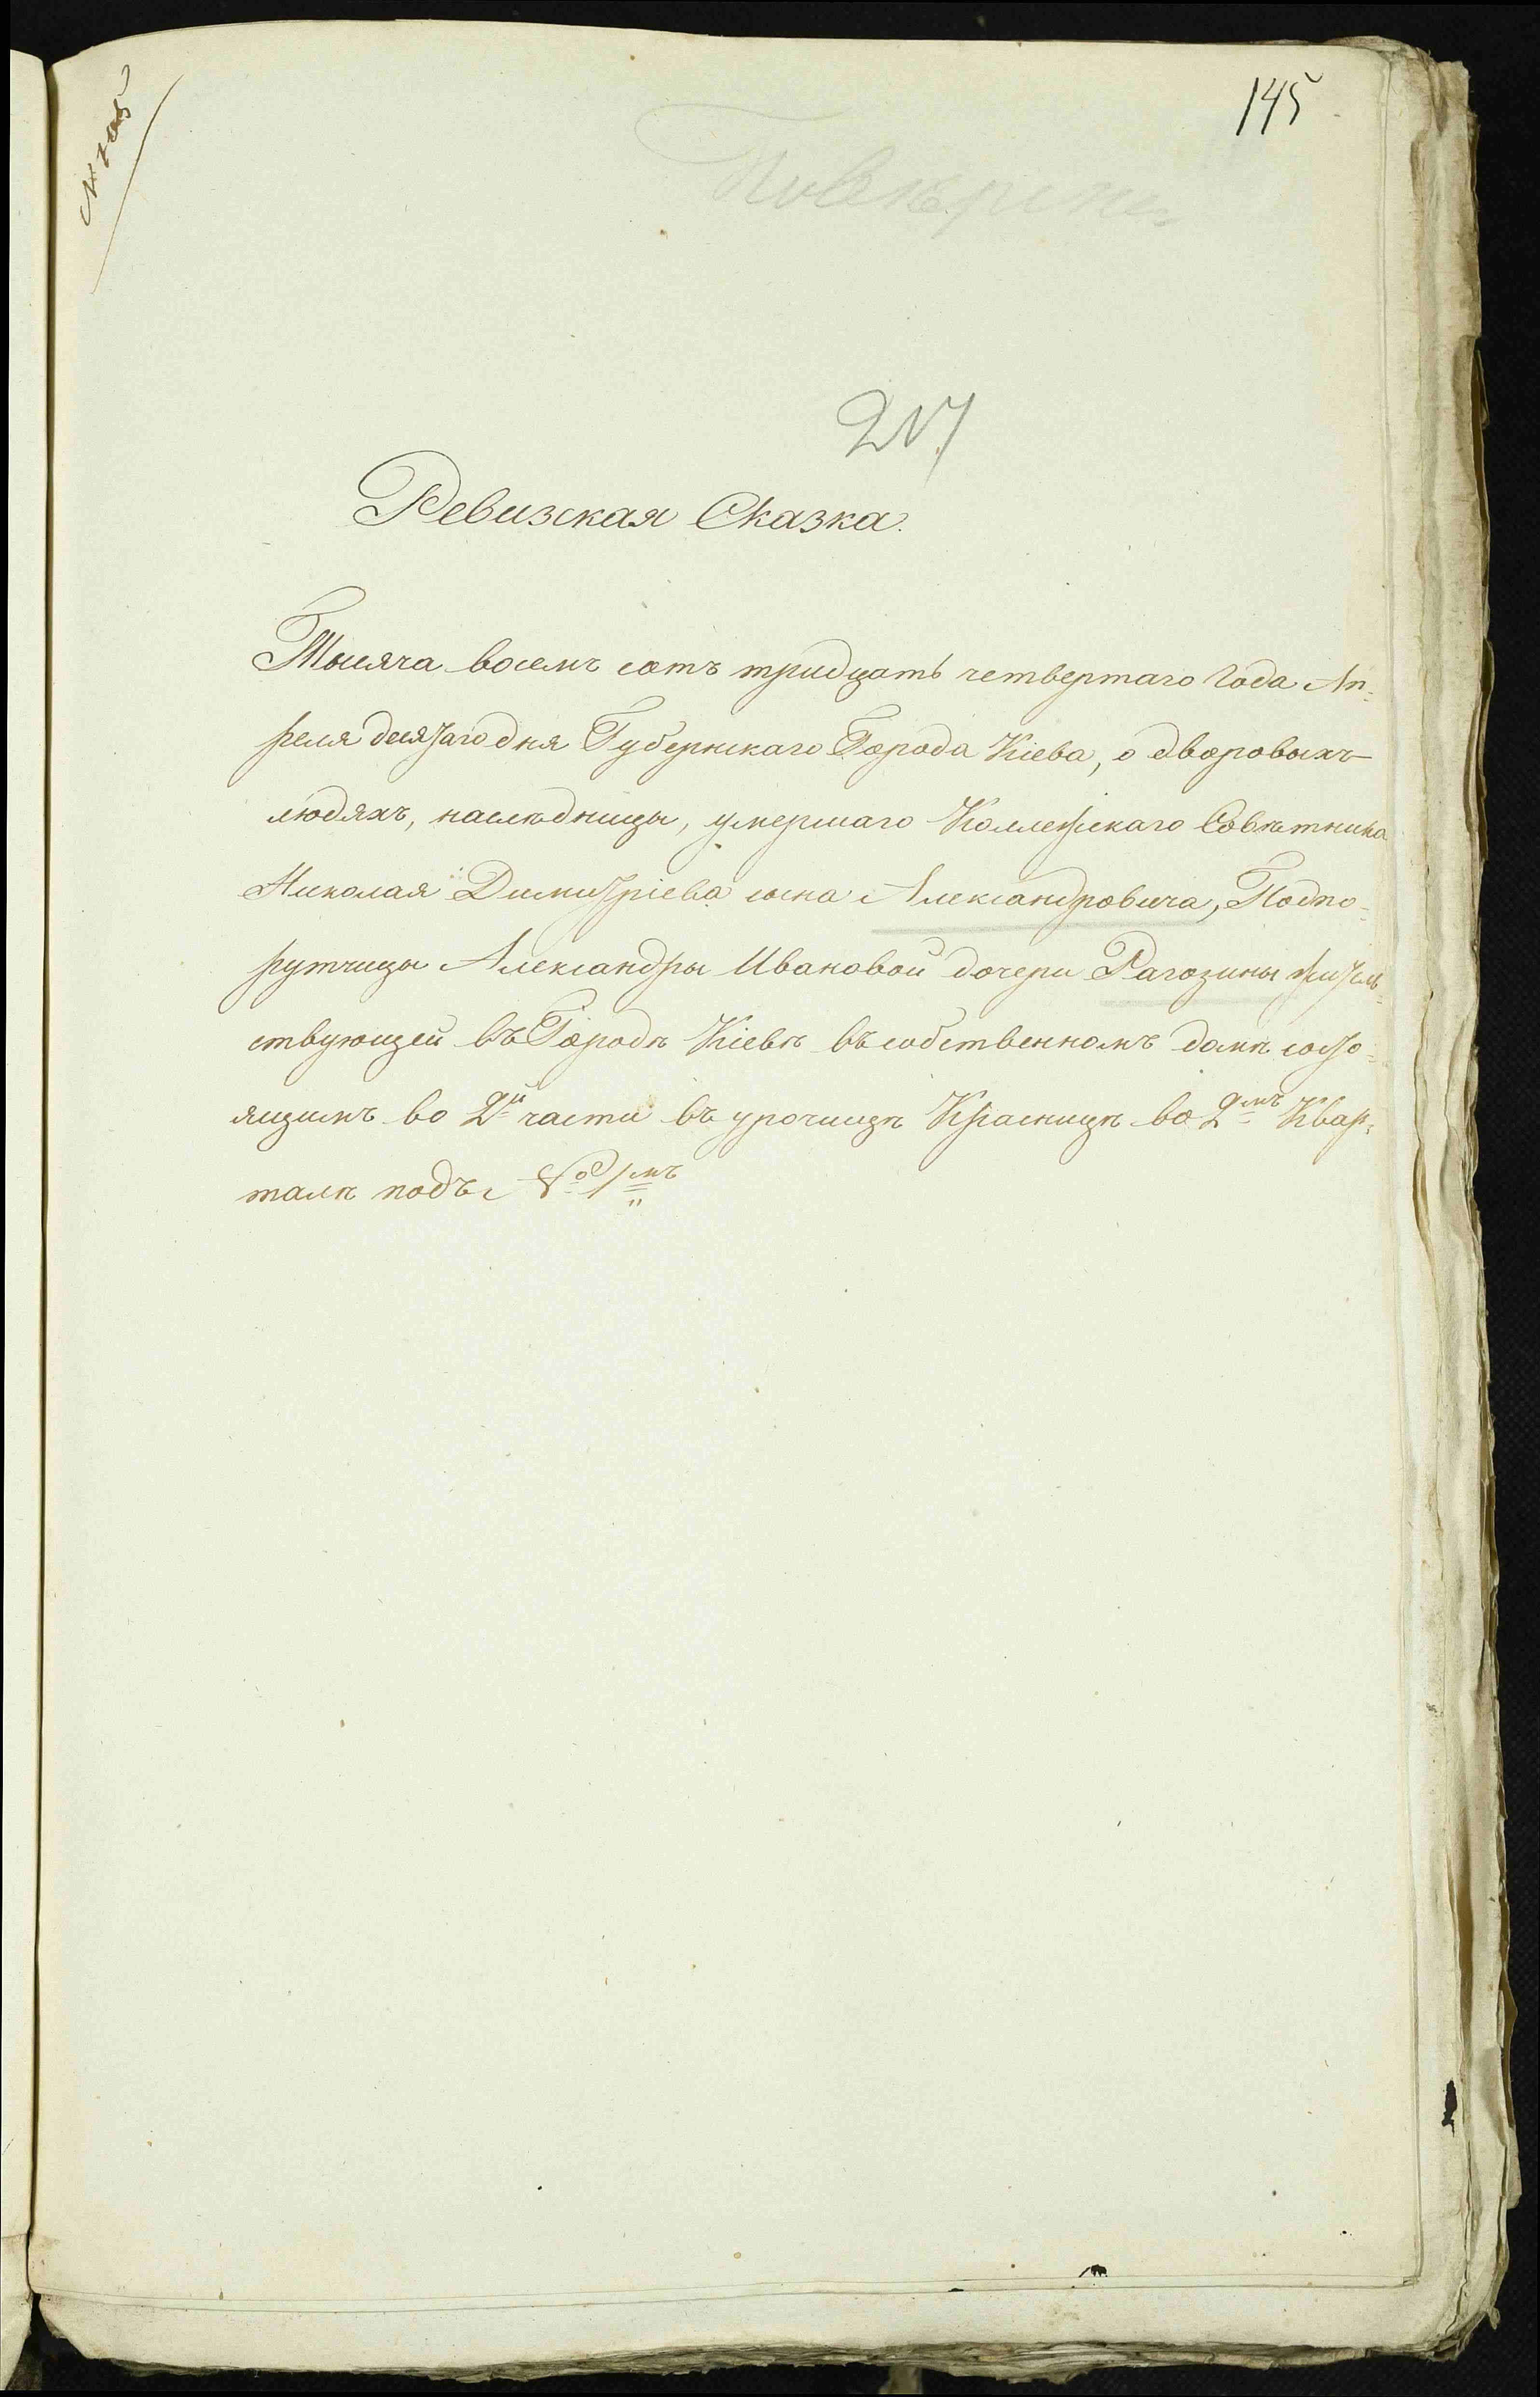 145
217
Ревизская Сказка.
Тысяча восемъ сотъ тридцать четвертаго Года Ап-
реля десятаго дня Губернскаго Города Кіева, о дворовыхъ
людяхъ, наследницы, умершаго Коллежскаго Советника
Николая Димитріева сына Александровича, Подпо-
рутчицы Александры Ивановой дочери Рагозины житель-
ствующей въ Городѣ Кіевѣ въ собственномъ домѣ состо-
ящимъ во 2й части въ урочищѣ Красницѣ во 2мъ Квар-
талѣ подъ №о 1мъ